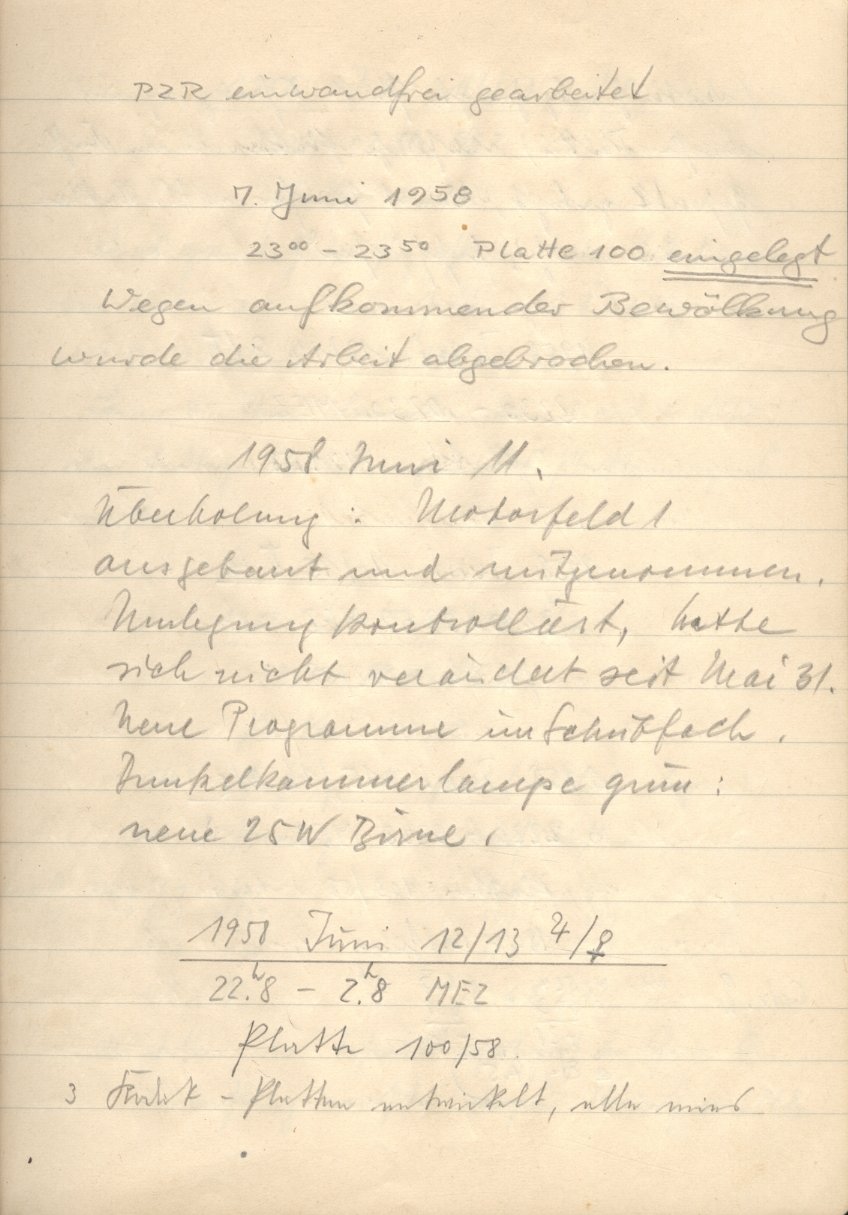 PZR einwandfrei gearbeitet
7. Juni 1958
23⁰⁰ - 23⁵⁰ Platte 100 eingelegt
Wegen aufkommender Bewölkung
wurde die Arbeit abgebrochen.
1958 Juni 11.
Überholung: Motorfeld 1
ausgebaut und mitgenommen.
kontrolliert, hatte
sich nicht verändert seit Mai 31.
Neue Programme im Schubfach.
Dunkelkammerlampe grün:
neue 25W Birne.
1958 Juni 12/13 ♃/♀
22ʰ.8 - 2ʰ.8 MEZ
Platte 100/58.
3 - Platten entwickelt, alle